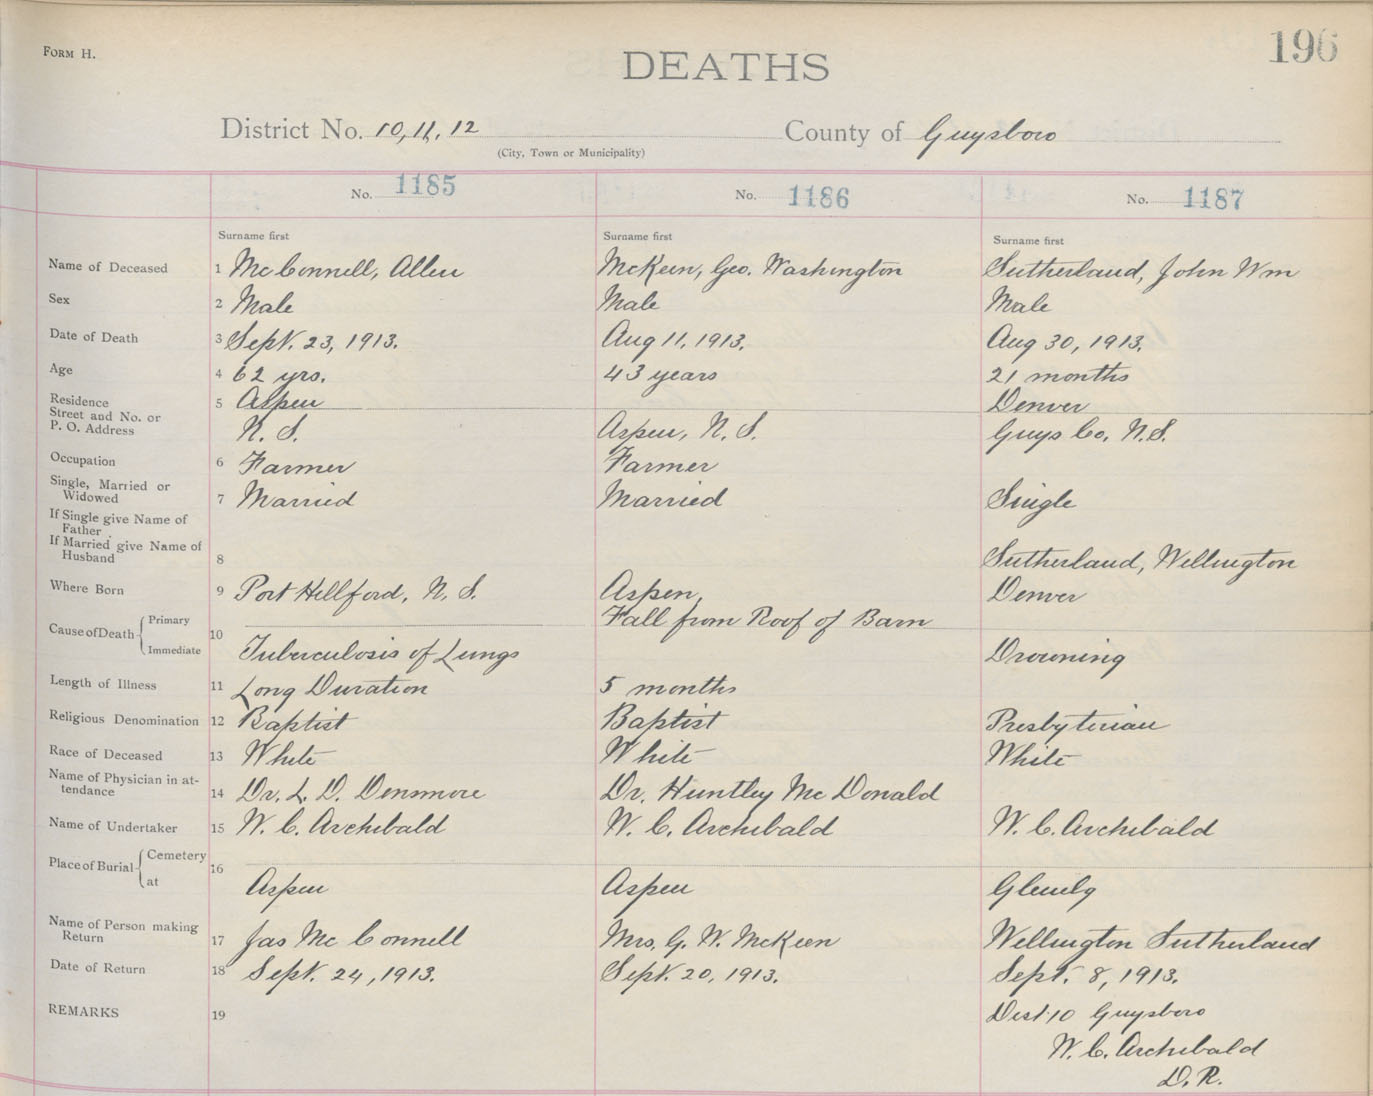 FORM H.
DEATHS
196
District No. 10, 11, 12 County of Guysboro
(City, Town or Municipality)
No. 1185 No. 1186 No. 1187
Surname first Surname first Surname first
Name of Deceased 1 McConnell, Allen McKeen, Geo. Washington Sutherland, John Wm
Sex 2 Male Male Male
Date of Death 3 Sept. 23, 1913. Aug 11, 1913. Aug 30, 1913.
Age 4 62 yrs. 43 years 21 months
Residence 5 Aspen Denver
Street and No. or
P. O. Address N. S. Aspen, N. S. Guys Co, N.S.
Occupation 6 Farmer Farmer
Single, Married or
Widowed 7 Married Married Single
If Single give Name of
Father
If Married give Name of
Husband 8 Sutherland, Wellington
Where Born 9 Port Hillford, N. S. Aspen, Denver
Cause of Death Primary 10 Fall from Roof of Barn
Immediate Tuberculosis of Lungs Drowning
Length of Illness 11 Long Duration 5 months
Religious Denomination 12 Baptist Baptist Presbyterian
Race of Deceased 13 White White White
Name of Physician in at-
tendance 14 Dr. L. D. Densmore Dr. Huntley McDonald
Name of Undertaker 15 W. C. Archibald W. C. Archibald W. C. Archibald
Place of Burial Cemetery 16
at Aspen Aspen Glenelg
Name of Person making
Return 17 Jas McConnell Mrs. G. W. McKeen Wellington Sutherland
Date of Return 18 Sept. 24, 1913. Sept. 20, 1913. Sept. 8, 1913.
REMARKS 19 Dist 10 Guysboro
W. C. Archibald
D. R.